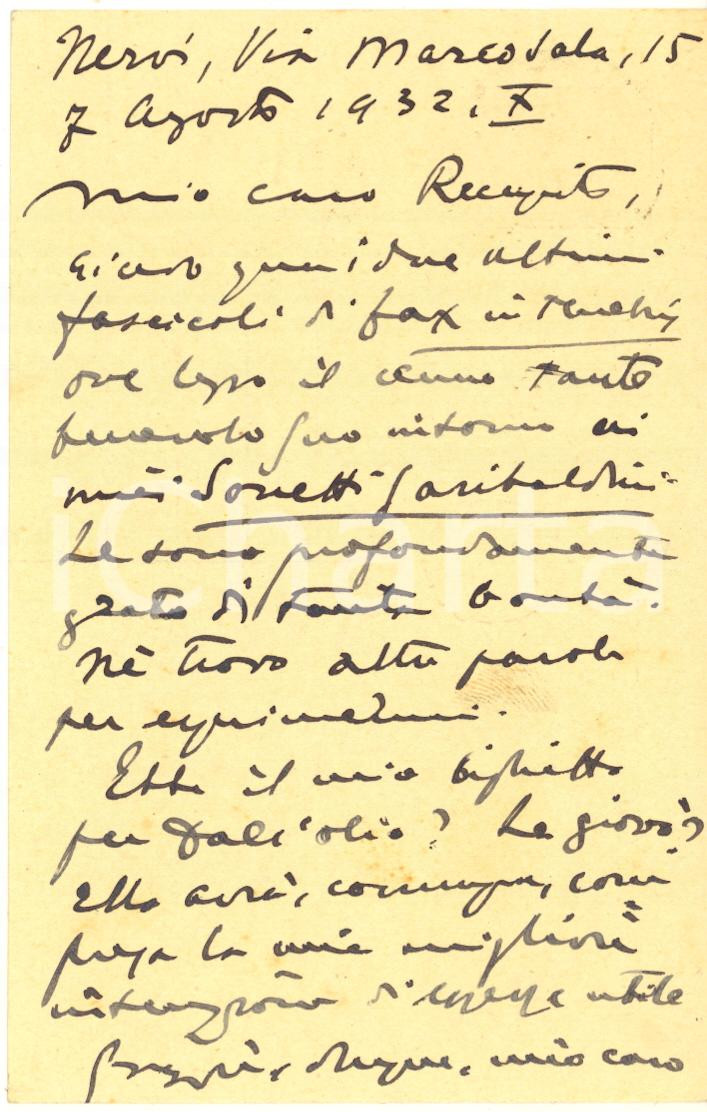 Nervi, Via Marco Sala, 15
7 Agosto 1932, X
Mio caro Recupito,
ricevo qui i due ultimi
fascicoli di fax in tenebris
ove leggo il cenno tanto
benevolo Suo intorno ai
miei Sonetti Garibaldini.
Le sono profondamente
grato di tanta bontà.
Nè trovo altre parole
per esprimermi.
Ebbe il mio biglietto
per Dall'olio? Le giovò?
Ella avrà, comunque,
la mia migliore
intenzione di essere utile
Grazie, dunque, mio caro
iCharta